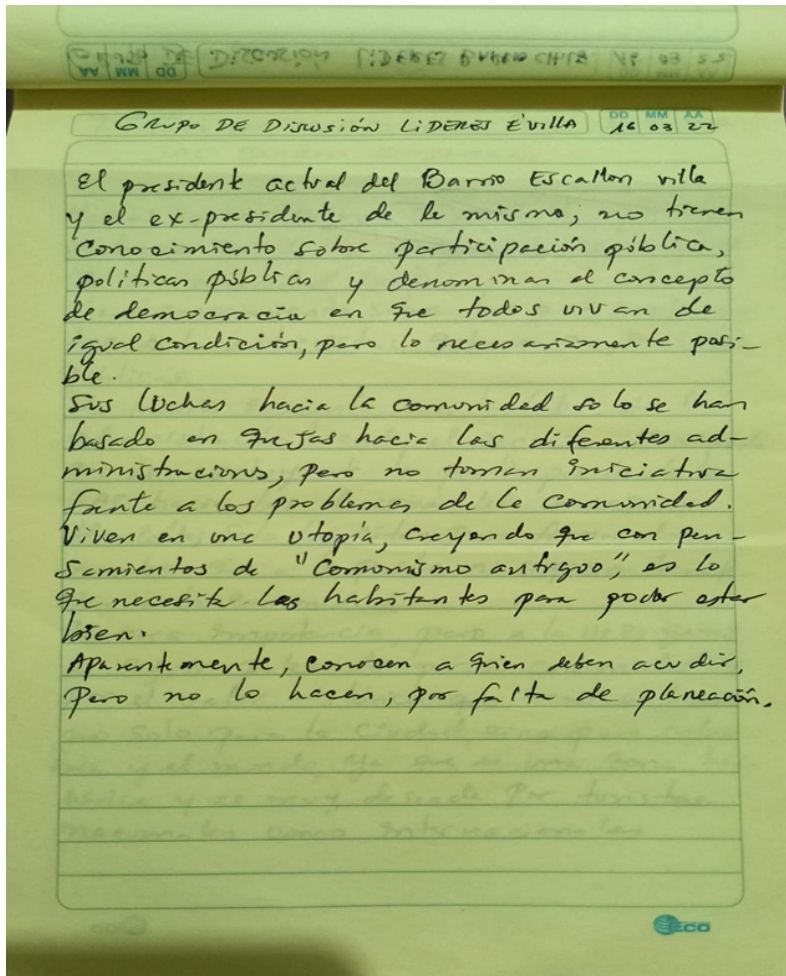 DD MM AA
GRUPO DE Discusión LiDERES E'villA 16 03 22
El presidente actual del Barrio Escallon villa
y el ex-presidente de le misma; no tienen
conocimiento sobre participación pública,
políticas públicas y denominan el concepto
de democracia en que todos vivan de
igual condición, pero lo necesariamente posi-
ble.
Sus luchas hacia la comunidad solo se han
basado en quejas hacia las diferentes ad-
ministraciones, pero no toman iniciativa
frente a los problemas de la comunidad.
Viven en una utopía, creyendo que con pen-
samientos de "Comonismo antiguo", es lo
que necesita los habitantes para poder estar
bien.
Aparentemente, conocen a quien deben acudir,
Pero no lo hacen, por falta de planeación.
ECO